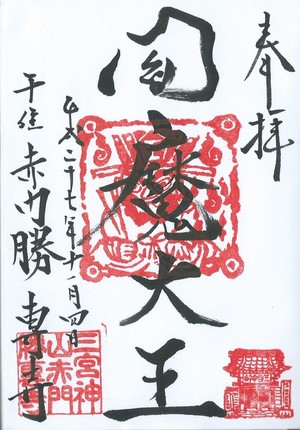 奉拝
閻魔大王
平成二十七年十一月四日
千住 赤門 勝専寺
三宮神
山赤門